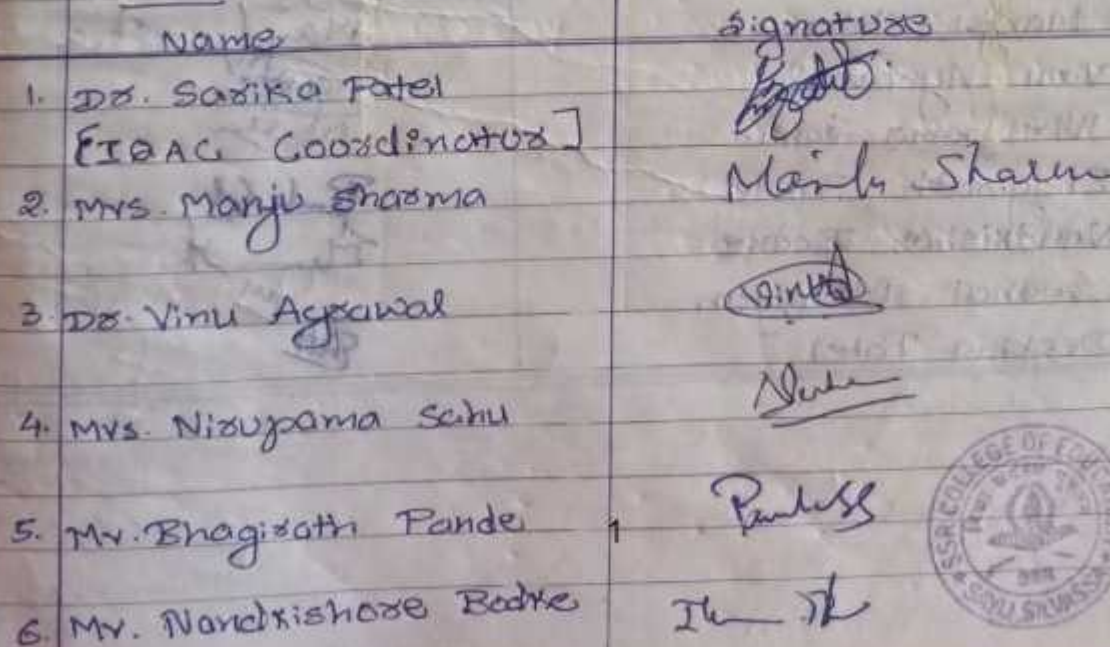 Name Signature
1. Dr. Sarika Patel
[IQAC Coordinator]
2. Mrs. Manju Sharma Manju Sharma
3 Dr. Vinu Agrawal Vinu
4. Mrs. Nirupama Sahu
5. Mr. Bhagirath Pande 1
6. Mr. Nandkishore Bodke
SSR COLLEGE OF EDUCA
SAYLI, SILVASSA